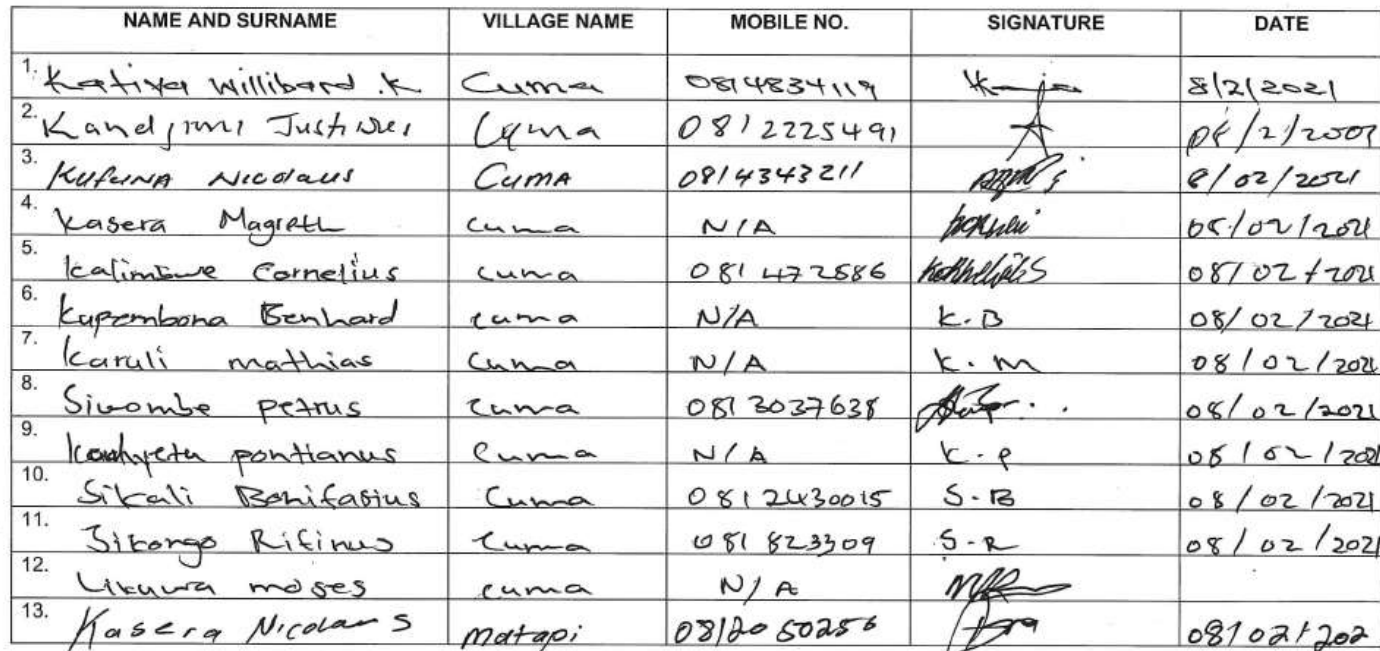 NAME AND SURNAME VILLAGE NAME MOBILE NO. SIGNATURE DATE
1. Katiya Willibard .K Cuma 0814834119 8/2/2021
2. Kandjimi Cuma 0812225491
3. KUFUNA NICOLAUS CUMA 0814343211 8/02/2021
4. Kasera Magreth cuma N/A 08/02/2021
5. Kalimbwe Cornelius cuma 081 472586 08/02/2021
6. Kupembona Benhard cuma N/A K.B 08/02/2021
7. Karuli mathias Cuma N/A K.M 08/02/2021
8. Sivombe petrus cuma 0813037638 08/02/2021
9. pontianus cuma N/A K.P 08/02/2021
10. Sikali Bonifasius Cuma 0812430015 S-B 08/02/2021
11. Sikongo Rifinus Cuma 081 823309 S-R 08/02/2021
12. Likuwa moses cuma N/A
13. Kasera Nicolaus Matapi 0812050256 08/02/202